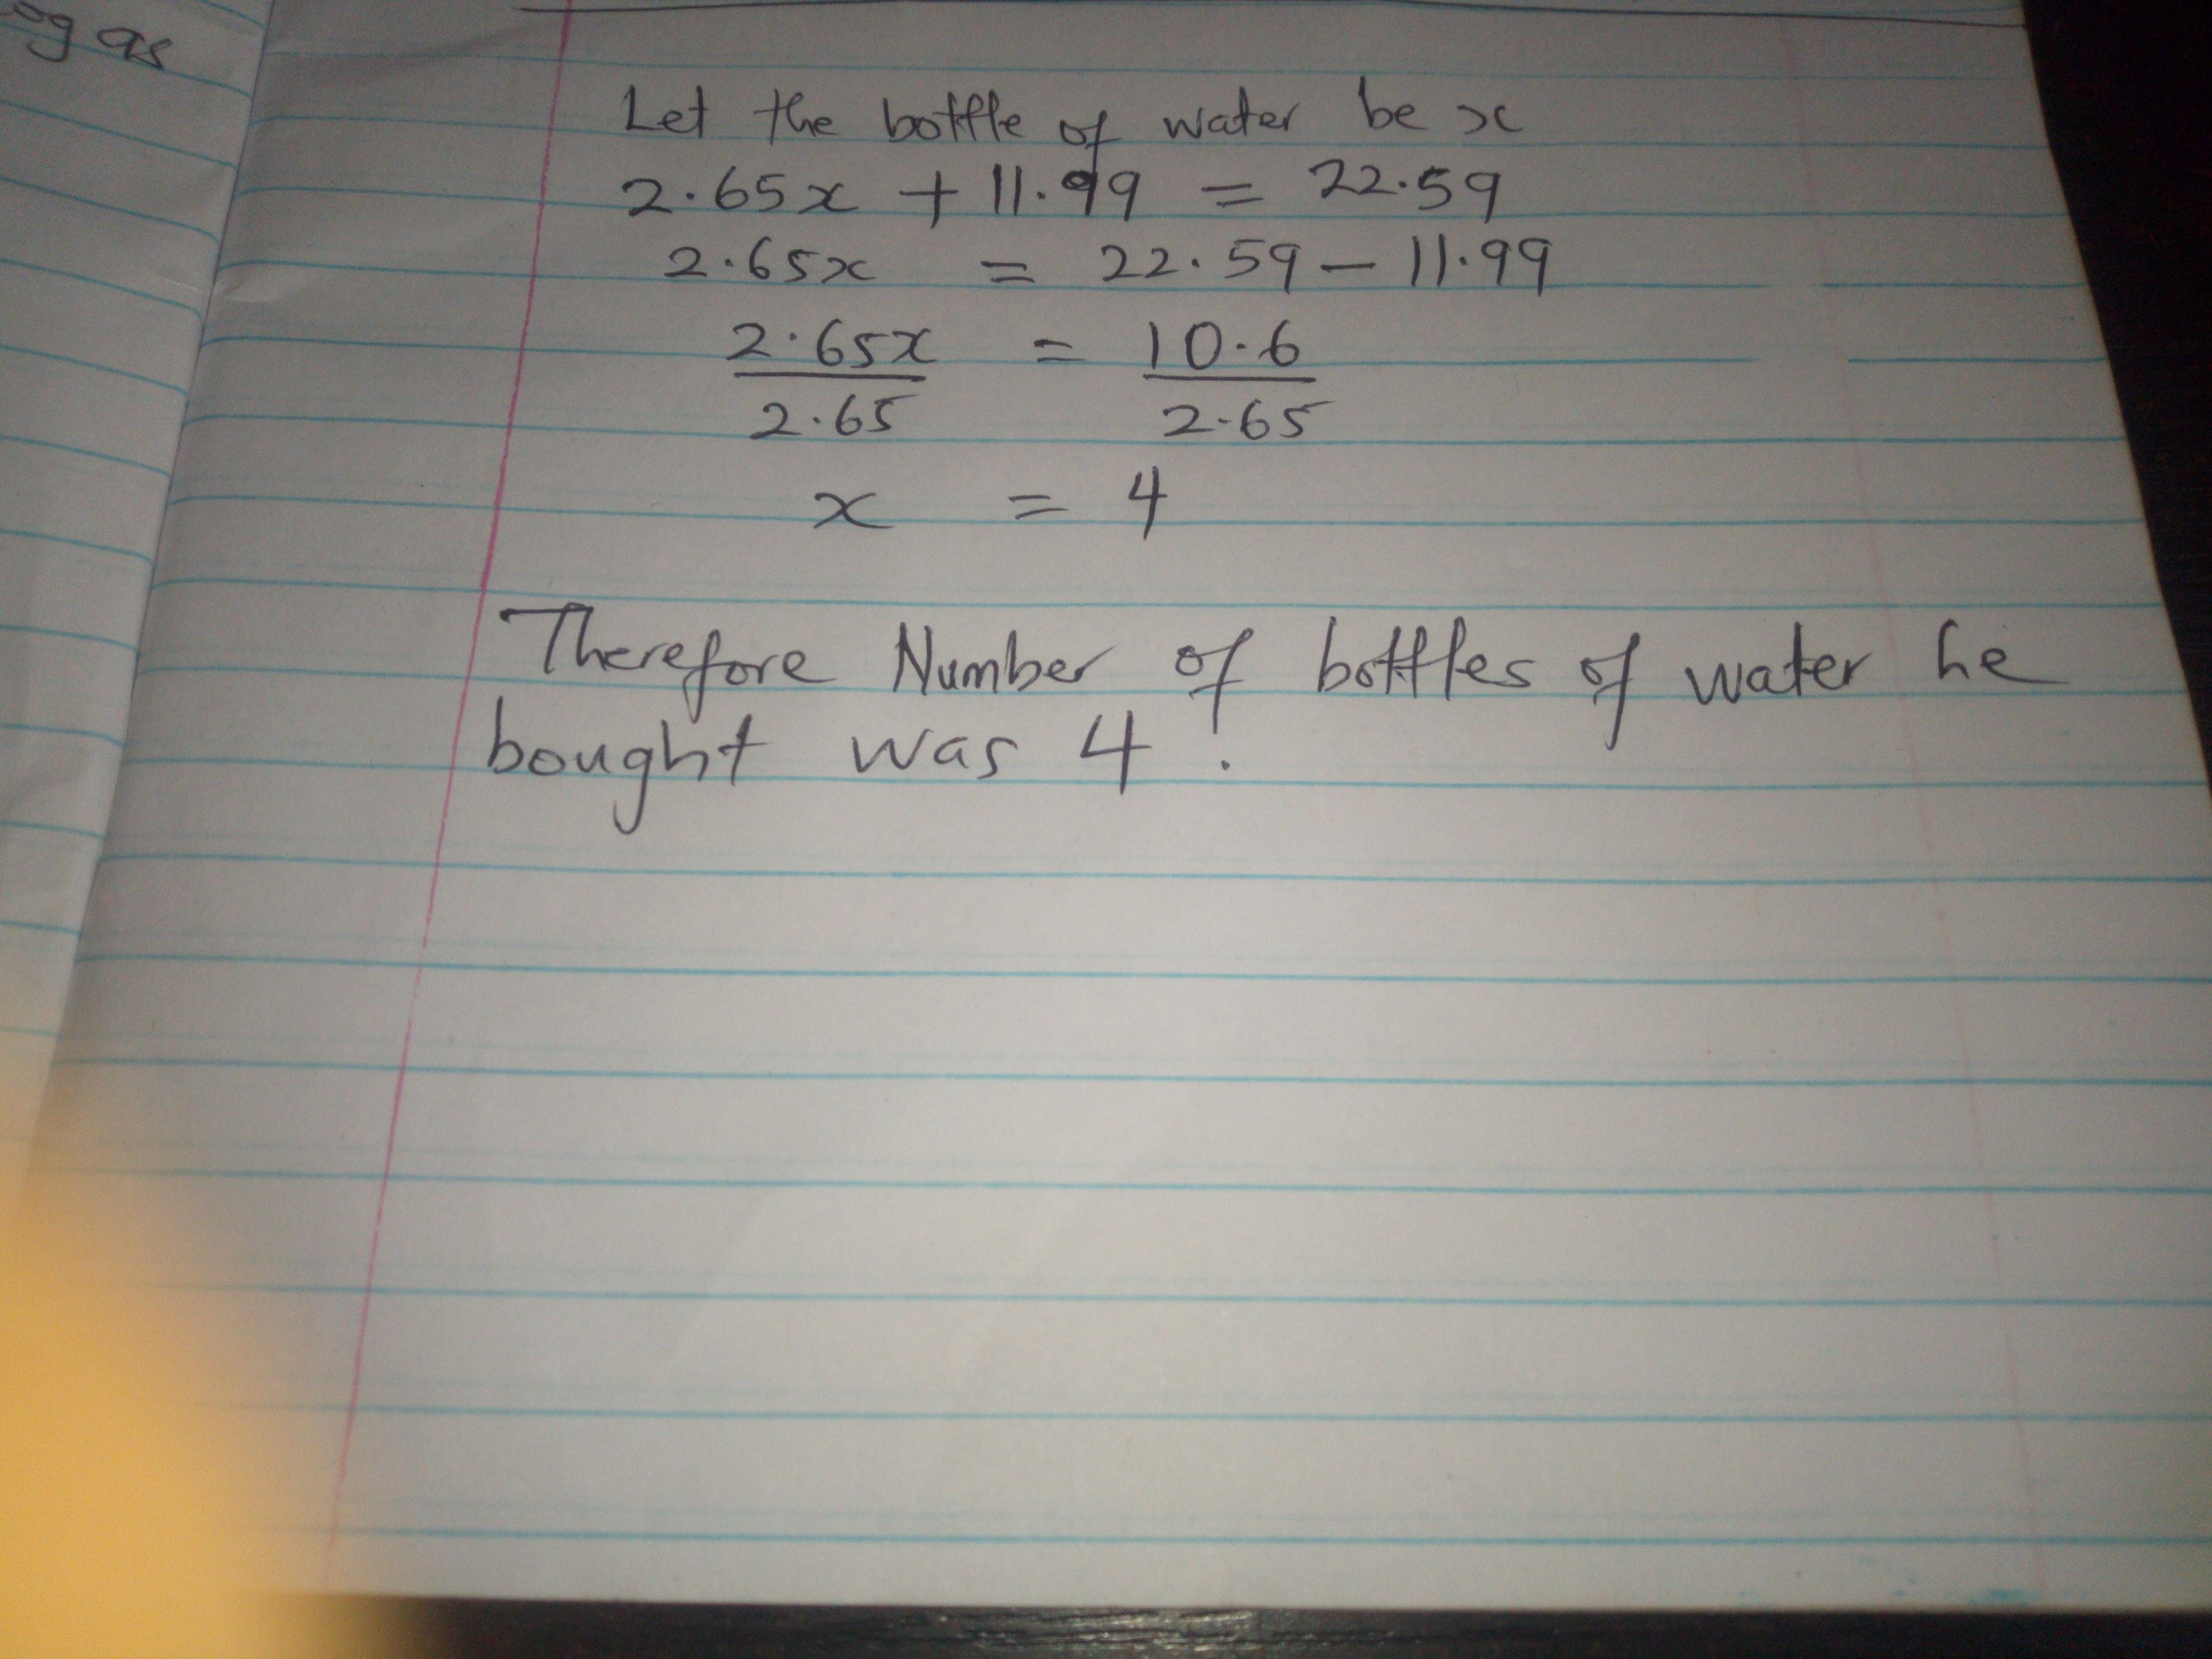 Let the bottle of water be x
2.65x + 11.99 = 22.59
2.65x = 22.59 - 11.99
2.65x = 10.6
2.65 2.65
x = 4
Therefore Number of bottles of water he
bought was 4.